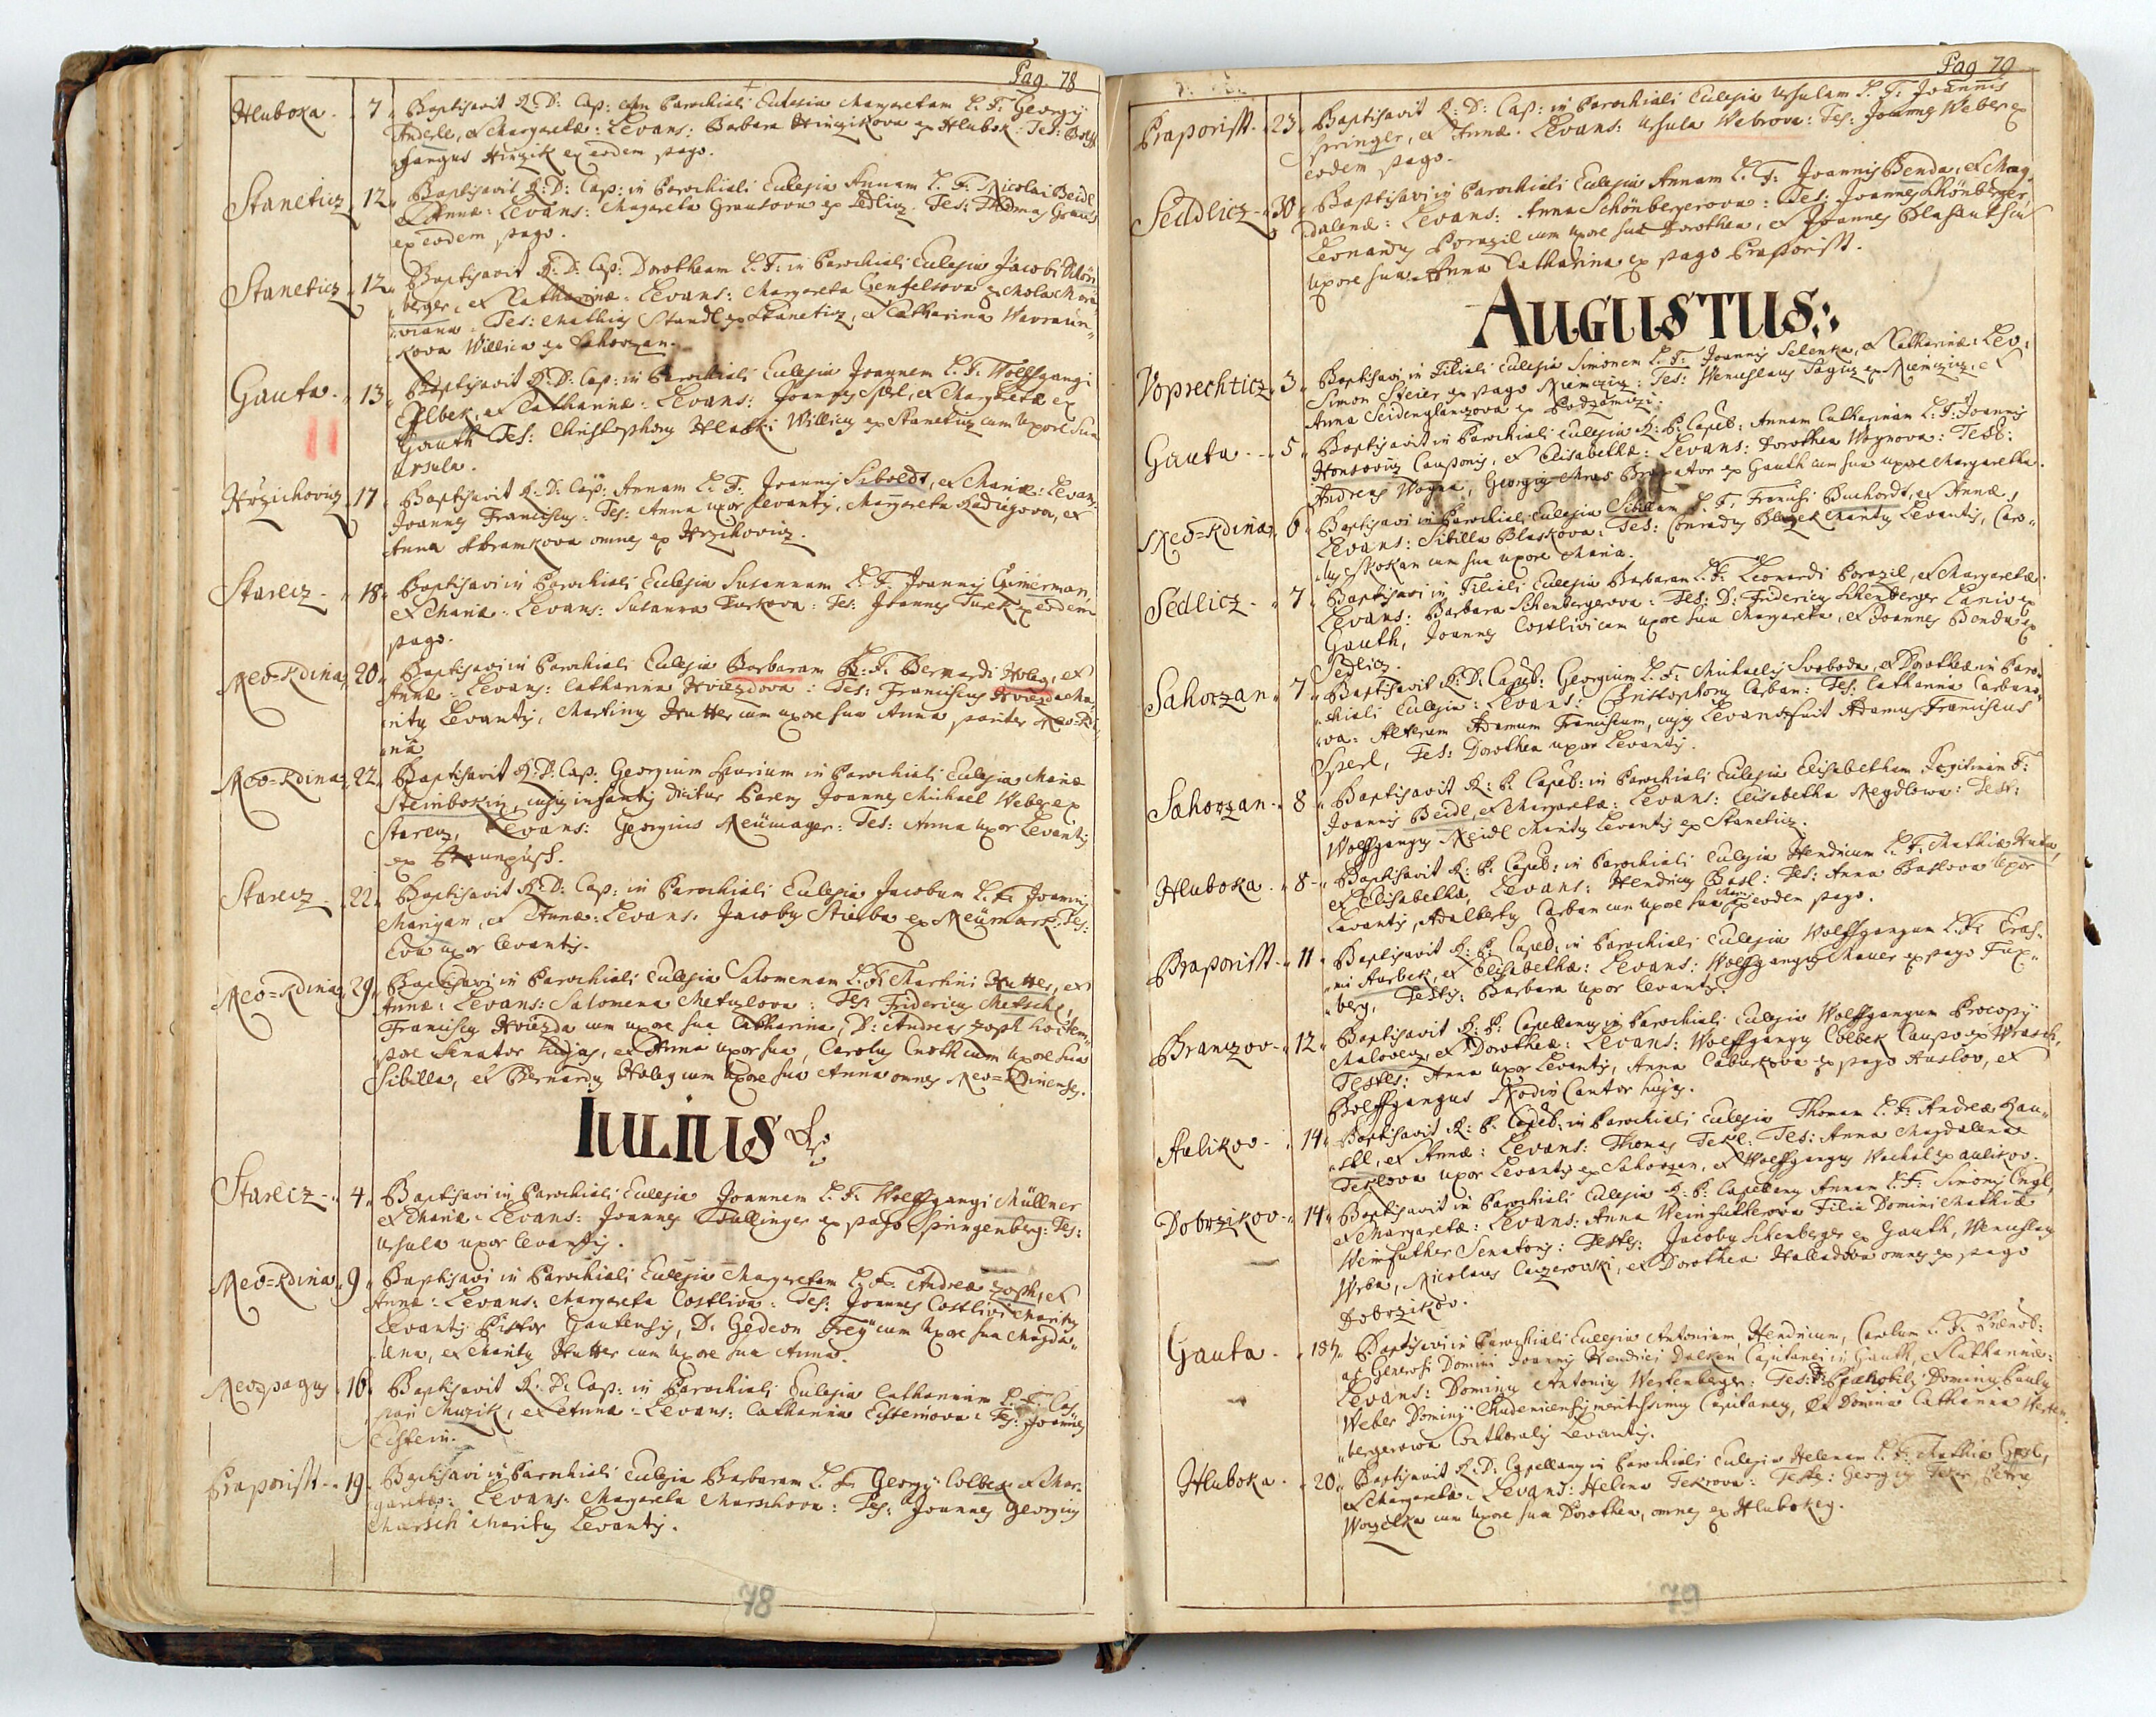 Pag. 78
Hluboka. 7. Baptisavit R: D: Cap: in Parochiali Eclesia Margaretam L: F: Georgÿ
Anderle, et Margaretæ: Levans: Barbara Hinzikova ex Hlubok: Tes: Wolff
gangus Hinzik ex eodem pago.
Staneticz 12. Baptisavit R: D: Cap: in Parochiali Eclesia Annam L: F: Nicolai Beidl
et Annæ: Levans: Magareta Grausova ex Sedlicz. Tes: Thomas Graus
ex eodem pago.
Staneticz 12. Baptisavit R: D: Cap: Dorotheam L: F: in Parochiali Eclesia Jacobi Schön
berger, et Catharinæ: Levans: Margareta Genfelsova ex Mola Mora
viana. Tes: Mathias Standl ex Staneticz, et Catharina Wavraun
kova Willica ex Sahorzan.
Gauta. 13. Baptisavit R: D: Cap: in Parochiali Eclesia Joannem L: F: Wolffgangi
Ellbek, et Catharinæ: Levans: Joannes Sperl, et Margareta ex
Gauth Tes: Christophorus Hlaski Willicus ex Staneticz cum Uxore Sua
Ursula.
Hrzichovicz 17. Baptisavit R: D: Cap: Annam L: F: Joannis Siboldt, et Mariæ: Levans:
Joannes Franciscus: Tes: Anna uxor levantis, Margareta Radiegova, et
Anna Abramkova omnes ex Hrzichovicz.
Starecz. 18. Baptisavi in Parochiali Eclesia Susannam L: F: Joannis Czimerman,
et Mariæ: Levans: Susanna Turkova: Tes: Joannes Turek ex eodem
pago.
Neo=Kdina 20. Baptisavi in Parochiali Eclesia Barbaram L: F: Bernardi Holeg, et
Annæ: Levans: Catharina Hviezdova: Tes: Franciscus Hviezda Ma
ritus Levantis, Martinus Hutter cum uxore sua Anna pariter Neo=Kdi
na
Neo=Kdina 22. Baptisavit R: D: Cap: Georgium Spurium in Parochiali Eclesia Mariæ
Steinbokin, cujus infantis dicitur Parens Joannes Michael Weber ex
Starecz, Levans: Georgius Neümager: Tes: Anna uxor Levantis
ex
Starecz 22. Baptisavit R: D: Cap: in Parochiali Eclesia Jacobum L: F: Joannis
Marigan, et Annæ: Levans: Jacobus Stieba ex Neümark: Tes:
Eva uxor levantis.
Neo=Kdina 29. Baptisavi in Parochiali Eclesia Salomenam L: F: Martini Hutter, et
Annæ: Levans: Salomena Metzlova: Tes: Fridericus Metschl,
Franciscus Hviezda cum uxore sua Catharina, D: Andreas Zoph hoc tem
pore Senator hujus, et Anna uxor sua, Carolus cum Uxore sua
Sibilla, et Bernardus Holeg cum Uxore sua Anna omnes Neo=Kdinenses.
IULIUS
Starecz 4. Baptisavi in Parochiali Eclesia Joannem L: F: Wolffgangi Müllner
et Mariæ: Levans: Joannes Fullinger ex pago Springenberg: Tes:
Ursula uxor levantis.
Neo=Kdina 9. Baptisavi in Parochiali Eclesia Margaretam L: F: Andreæ Zoph, et
Annæ: Levans: Margareta Costliva: Tes: Joannes Costlivi Maritus
Levantis Pistor Gautensis, D: Gedeon Freÿ cum Uxore sua Magda
lena, et Maritus Hutter cum Uxore sua Anna.
Neo=pagus 16. Baptisavit R: D: Cap: in Parochiali Eclesia Catharinam L: F: Cas
pari Muzik, et Annæ: Levans: Catharina Eisteinova: Tes: Joannes
Eistein.
Praporisst 19. Baptisavi in Parochiali Eclesia Barbaram L: F: Georgÿ Colbek et Mar
garetæ: Levans: Margareta Marschova: Tes: Joannes Georgius
Marsch Maritus Levantis.
78
Pag 79
Praporisst. 23. Baptisavit R: D: Cap: in Parochiali Eclesia Ursulam L: F: Joannis
Springer, et Annæ: Levans: Ursula Webrova: Tes: Joannes Weber ex
eodem pago.
Seddlicz 30. Baptisavi in Parochiali Eclesia Annam L: F: Joannis Benda, et Mag
dalenæ: Levans: Anna Schönbergerova: Tes: Joannes Schönberger,
Leonardus Porazil cum uxore sua Dorothea, et Joannes Blasaut cum
Uxore sua Anna Catharina ex pago Praporisst.
AUGUSTUS:
Voprechticz 3. Baptisavi in Filiali Eclesia Simonem L: F: Joannis Selenka, et Catharinæ: Lev:
Simon Steier ex pago Niemczicz: Tes: Wenceslaus ex Niemczicz, et
Anna Seidenglanzova ex Podzamczi.
Gauta. 5. Baptisavit in Parochiali Eclesia R: P: Capeb: Annam Catharinam L: F: Joannis
Honsovicz Cauponis, et Elisabethæ: Levans: Dorothea Wognova: Test:
Andreas Wogna, Georgius Mras Braxator ex Gauth cum sua uxore Margaretha.
Neo=Kdina 6. Baptisavi in Parochiali Eclesia Sibillam L: F: Francisci Buchordt, et Annæ,
Levans: Sibilla Blaskova: Tes: Conradus Blazek Maritus Levantis, Caro
lus Skokan cum sua uxore Maria.
Sedlicz 7. Baptisavi in Filiali Eclesia Barbaram L: F: Leonardi Porazil, et Margaretæ.
Levans: Barbara Schenbergerova: Tes: D: Fridericus Schenberger Lanio ex
Gauth, Joannes Costlivi cum uxore sua Margareta, et Joannes Benda ex
Sedlicz.
Sahorzan 7. Baptisavit R: D: Capeb: Georgium L: F: Michaelis Svoboda, et Dorotheæ in Paro
chiali Eclesia: Levans: Christophorus Carban: Tes: Catharina Carbano
va: Alterum Adamum Franciscum, cujus Levans fuit Adamus Franciscus
Sperl, Tes: Dorothea uxor Levantis.
Sahorzan 8. Baptisavit R: P: Capeb: in Parochiali Eclesia Elisabetham Legitimam F:
Joannis Beidl, et Margaretæ: Levans: Elisabetha Neydlova: Test:
Wolffgangus Neidl Maritus Levantis ex Stanetiz.
Hluboka. 8. Baptisavit R: P: Capeb: in Parochiali Eclesia Hendricum L: F: Mathiæ Huta,
et Elisabethæ, Levans: Hendricus Basl: Tes: Anna Baslova Uxor
Levantis, Adalbertus Carban cum uxore sua Maria ex eodem pago.
Praporisst 11. Baptisavit R: P: Capeb: in Parochiali Eclesia Wolffgangum L: F: Eras
mi Aurbek, et Elisabethæ: Levans: Wolffgangus Maver ex pago Fux
berg, Testis: Barbara uxor levantis.
Branczov 12. Baptisavit R: P: Capellanus in Parochiali Eclesia Wolffgangum Procopÿ
Malovecz, et Dorotheæ: Levans: Wolffgangus Colbek Caupo ex
Testes: Anna uxor Levantis, Anna Caburkova ex pago Auslov, et
Wolffgangus Cantor hujus.
Aulikov 14. Baptisavit R: P: Capeb: in Parochiali Eclesia Thomam L: F: Andreæ Rau
schl, et Annæ: Levans: Thomas Tekl: Tes: Anna Magdalena
Teklova uxor Levantis ex Sahorzan, et Wolffgangus Wachal ex Aulikov.
Dobrzikov 14. Baptisavit in Parochiali Eclesia R: P: Capellanus Annam L: F: Simonis Engl,
et Margaretæ: Levans: Anna Weinfurtherova Filia Domini Mathiæ
Weinfurther Senatoris: Testes: Jacobus Schenberger ex Gauth, Wenceslaus
Wrba, Nicolaus Caizerovski, et Dorothea Haladova omnes ex pago
Dobrzikov.
Gauta. 15. Baptisavi in Parochiali Eclesia Antonium, Hendricum, Carolum L: F: Prænob:
ac Generosi Domini Joannis Hendrici Capitanei in Gauth, et Catharinæ:
Levans: Dominus Antonius Werttenberger: Tes: D: Prænobilis Dominus Paulus
Weber Dominÿ Chudenicensis meritissimus Capitaneus, et Domina Catharina Werten
bergerova Levantis.
Hluboka. 20. Baptisavit R: D: Capellanus in Parochiali Eclesia Helenam L: F: Mathiæ
et Margareta. Levans: Helena Tekrova: Teste: Georgius Tekr, Petrus
Woyzelka cum Uxore sua Dorothea, omnes ex Hlubokey.
79